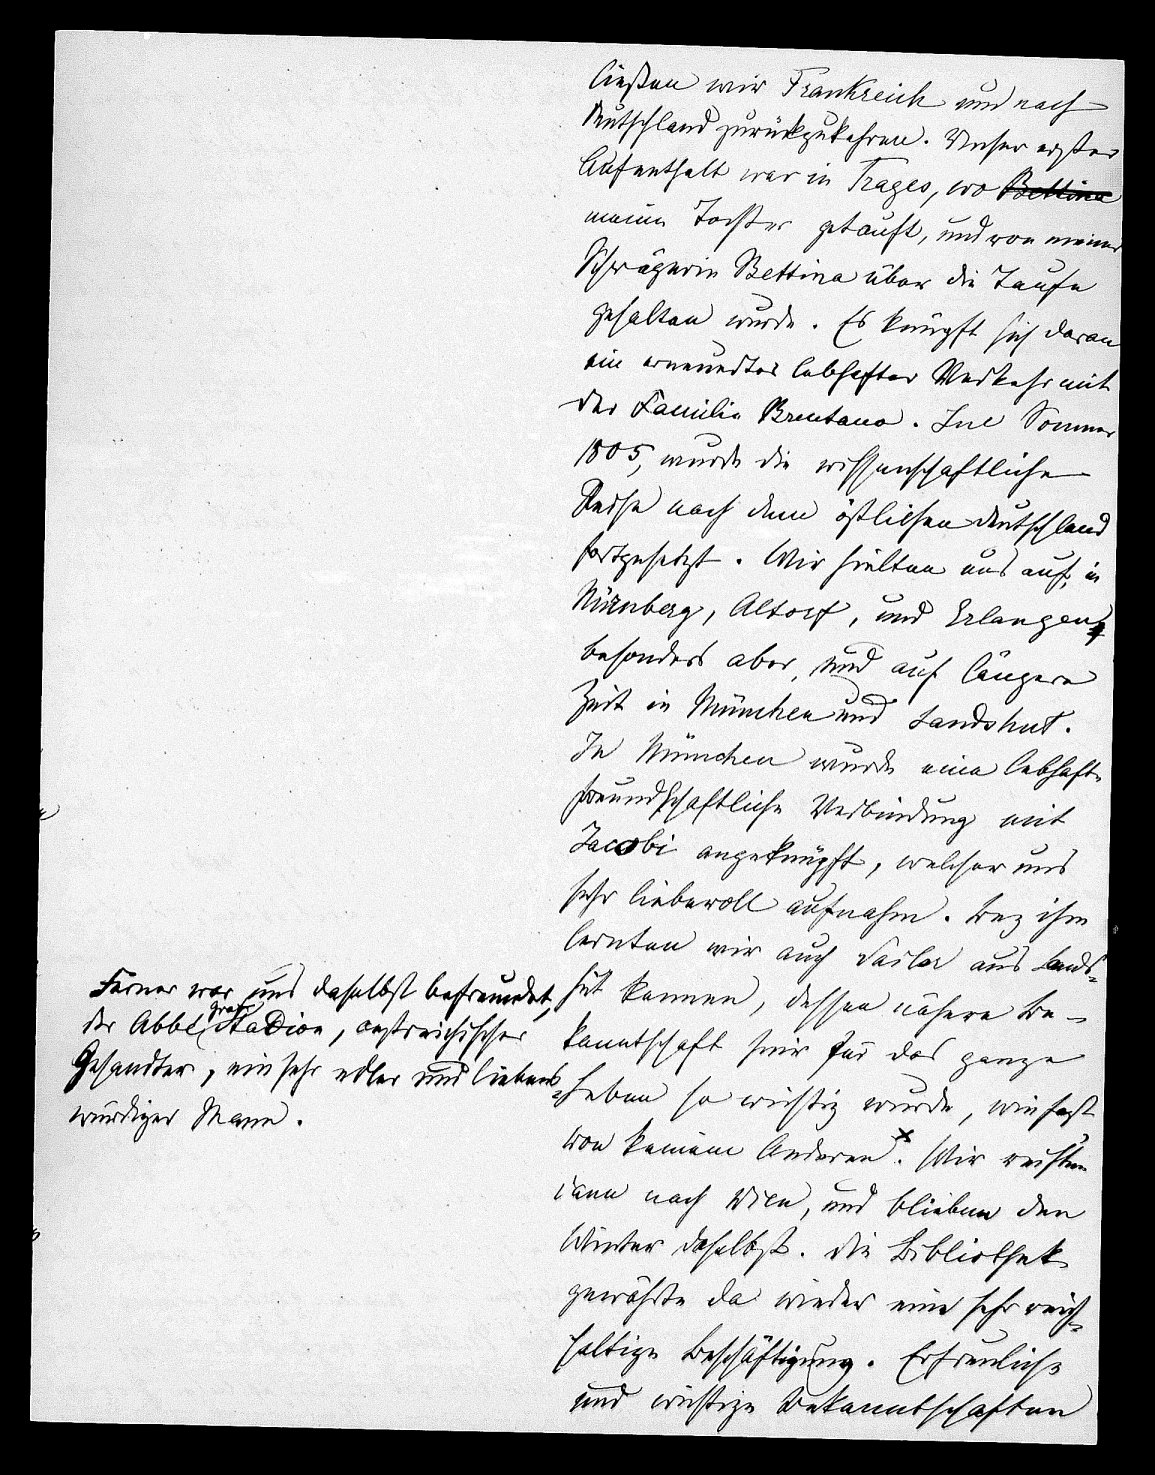 ließen wir Frankreich um nach
Deutschland zurückzukehren. Unser erster
Aufenthalt war in Trages, wo Bettina
meine Tochter getauft, und von meiner
Schwägerin Bettina über die Taufe
gehalten wurde. Es knüpft sich daran
ein erneuertes lebhafter Verkehr mit
der Familie Brentano. Im Sommer
1805, wurde die wissenschaftliche
Reise nach dem östlichen Deutschland
fortgesetzt. Wir hielten uns auf, in
Nürnberg, Altorf, und Erlangen,
besonders aber, und auf längere
Zeit in München und Landshut.
In München wurde eine lebhaft-
freundschaftliche Verbindung mit
Jacobi angeknüpft, welcher uns
sehr liebevoll aufnahm. Bey ihm
lernten wir auch Sailer aus Lands-
hut kennen, dessen nähere Be-
kanntschaft hier für das ganze
Leben so wichtig wurde, wie fast
von keinem Anderen x. Wir reisten
dann nach Wien, und blieben den
Winter daselbst. Die Bibliothek
gewährte da wieder eine sehr reich-
haltige Beschäftigung. Erfreuliche
und wichtige Bekanntschaften
Ferner war uns daselbst befreundet,
der Abbé Graf Stadion, oestreichischer
Gesandter, ein sehr edler und liebens-
würdiger Mann.